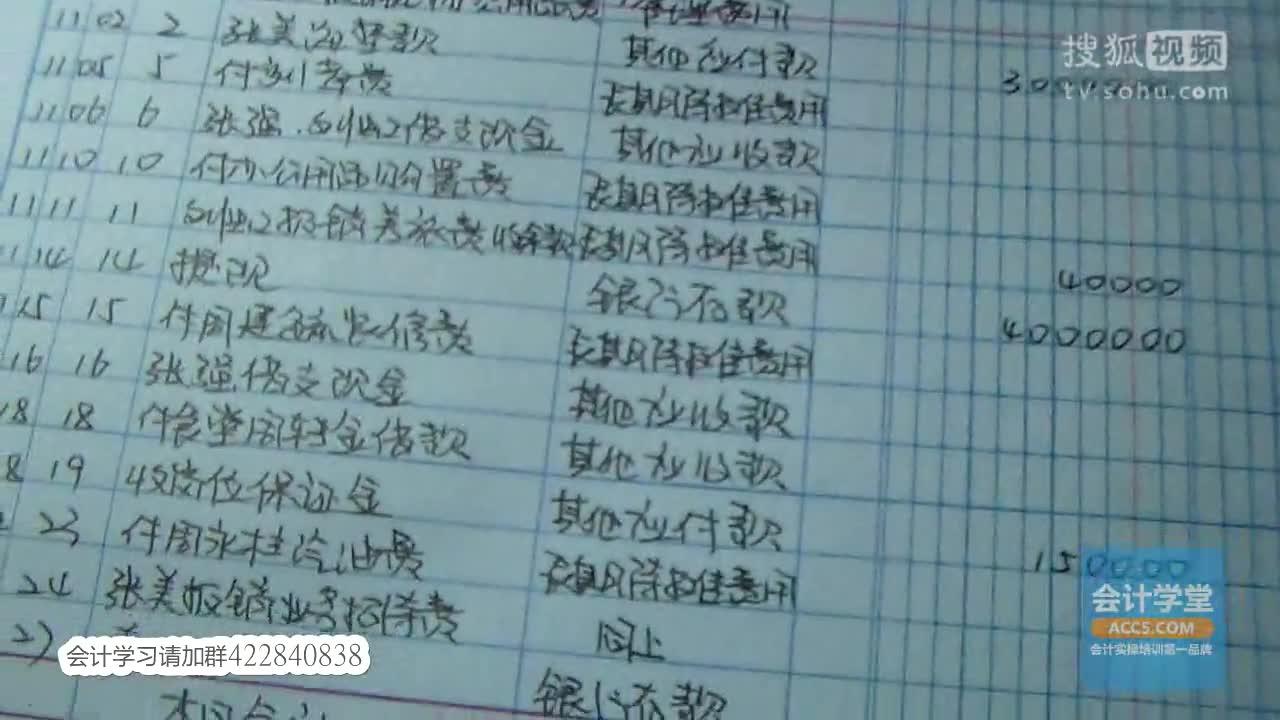 搜狐视频
tv.sohu.com
11 02 2 张美 款 其他应付款
11 05 5 付 长期待摊费用
11 06 6 张强 借支现金 其他应收款
11 10 10 付办公用 置费 长期待摊费用
11 11 11 报销差旅费收余款 长期待摊费用 40000
14 14 提现 银行存款 4000000
15 15 付周建 装修费 长期待摊费用
16 16 张强借支现金 其他应收款
18 18 付食堂周转金借款 其他应收款
8 19 收岗位保证金 其他应付款 150000
23 付周永桂汽油费 长期待摊费用
24 张美报销业务招待费 同上
27 银行存款
会计学堂
ACC5.COM
会计实操培训第一品牌
会计学习请加群422840838